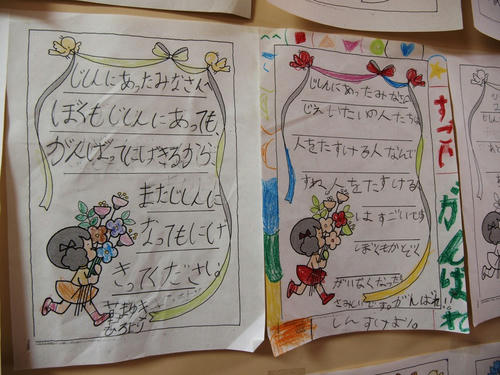 じしんにあったみなさんへ
ぼくもじしんにあっても、
がんばってにげきるから、
またじしんに
なってもにげ
きってください。
ひろとり
じしんにあったみなさん
じえいたいの人たちは
人をたすける人なんで
すね。人をたすける人
はすごいです
ぼくもかぞく
がいなくなったら
さみしいです。がんばれ!!
しんすけより。
すごい
がんばれ